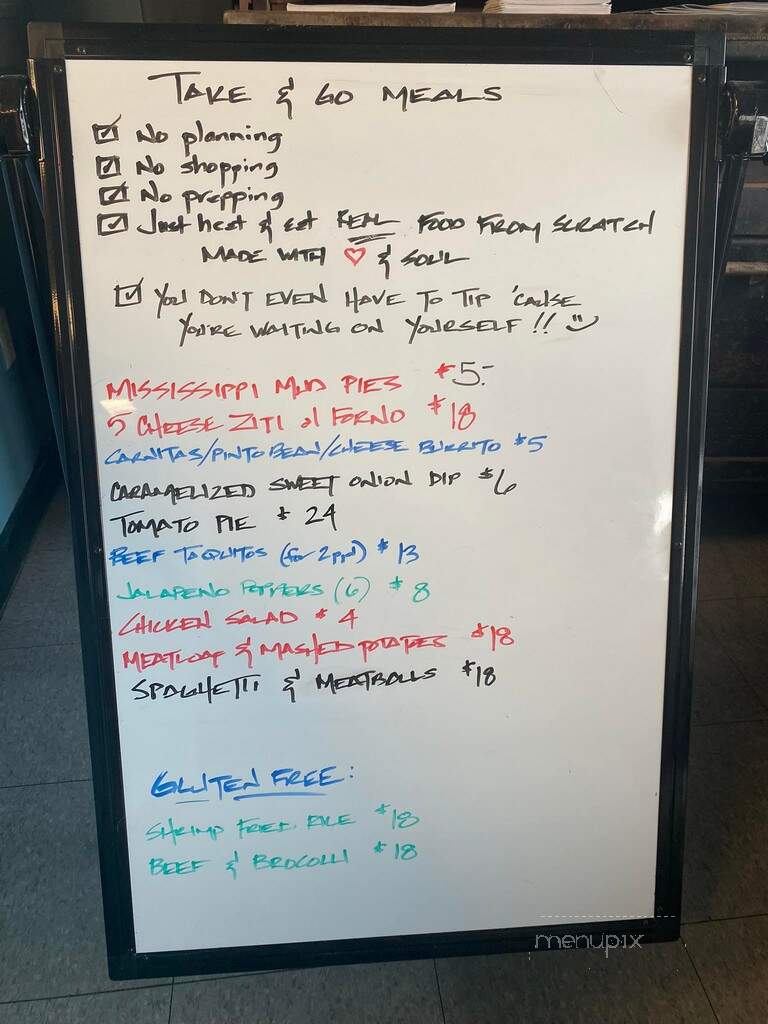 TAKE & GO MEALS
☑ No planning
☑ No shopping
☑ No prepping
☑ Just heat & eat REAL FOOD FROM SCRATCH
MADE WITH ♡ & SOUL
☑ YOU DON'T EVEN HAVE TO TIP 'CAUSE
YOU'RE WAITING ON YOURSELF!! ☺
MISSISSIPPI MUD PIES $5.-
5 CHEESE ZITI al FORNO $18
CARNITAS/PINTO BEAN/CHEESE BURRITO $5
CARAMELIZED SWEET ONION DIP $6
TOMATO PIE $24
BEEF TAQUITOS (for 2ppl) $13
JALAPENO POPPERS (6) $8
CHICKEN SALAD $4
MEATLOAF & MASHED POTATOES $18
SPAGHETTI & MEATBALLS $18
GLUTEN FREE:
SHRIMP FRIED RICE $18
BEEF & BROCOLLI $18
menupix